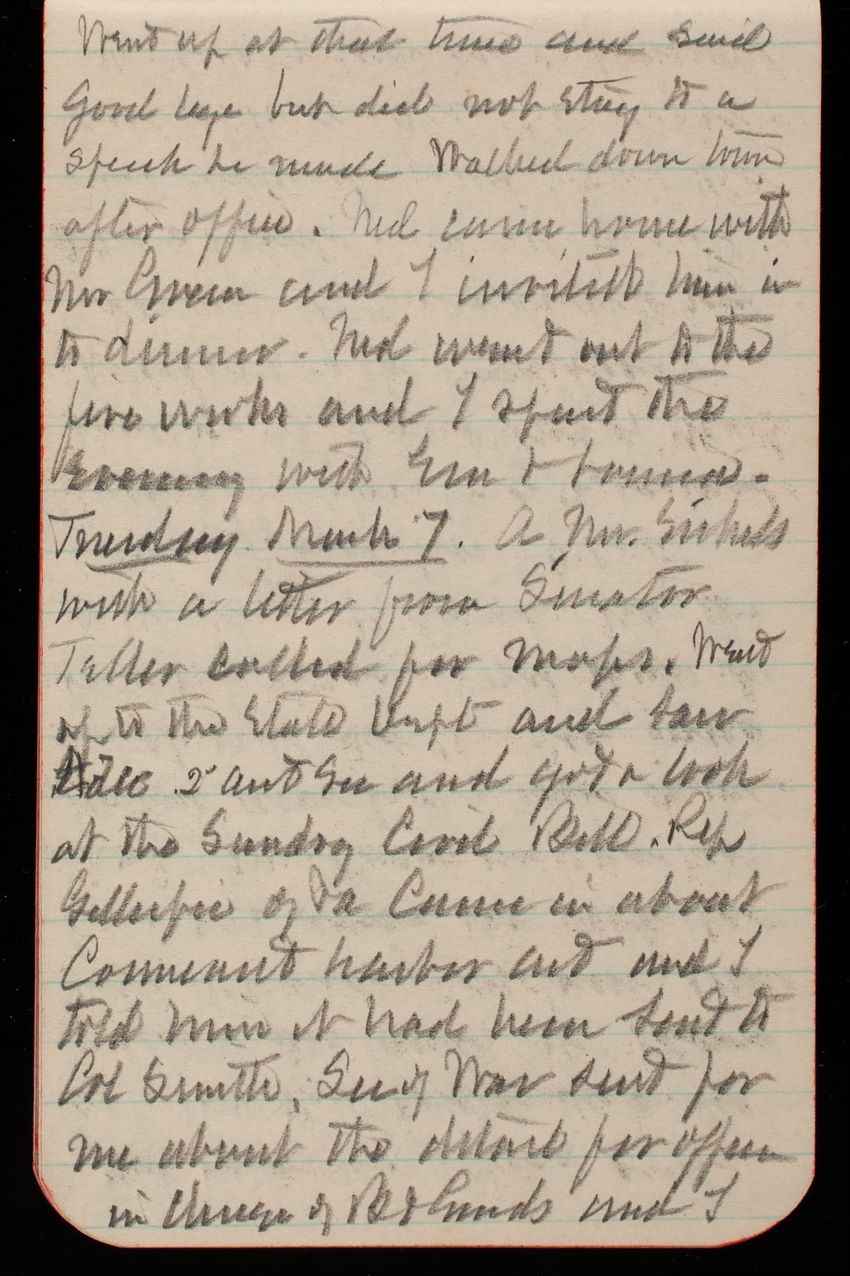 Went up at that time and said
Good bye but did not stay to a
speech he made Walked down town
after office. Ned came home with
Mr Green and I invited him in
to dinner. Ned went out to the
fire works and I spent the
Evening with Em &
Tuesday March 7. A Mr.
with a letter from Senator
Teller called for maps. Went
up to the State Dept and saw
Adee 2d and got a look
at the Sundry Civil Bill. Rep
Gillespie of Pa Came in about
Conneaut harbor and and I
told him it had been sent to
Col Smith. Sec of War sent for
me about the detail for officer
in charge of B & Grounds and I